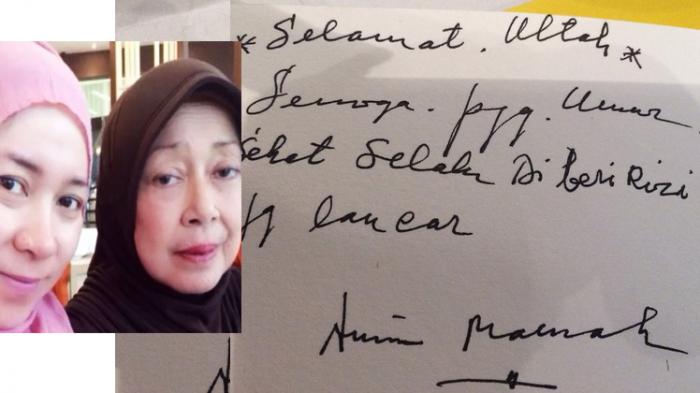 * Selamat. Ultah *
Semoga. pjg. Umur
Sehat Selalu Di beri Rizi
yg lancar